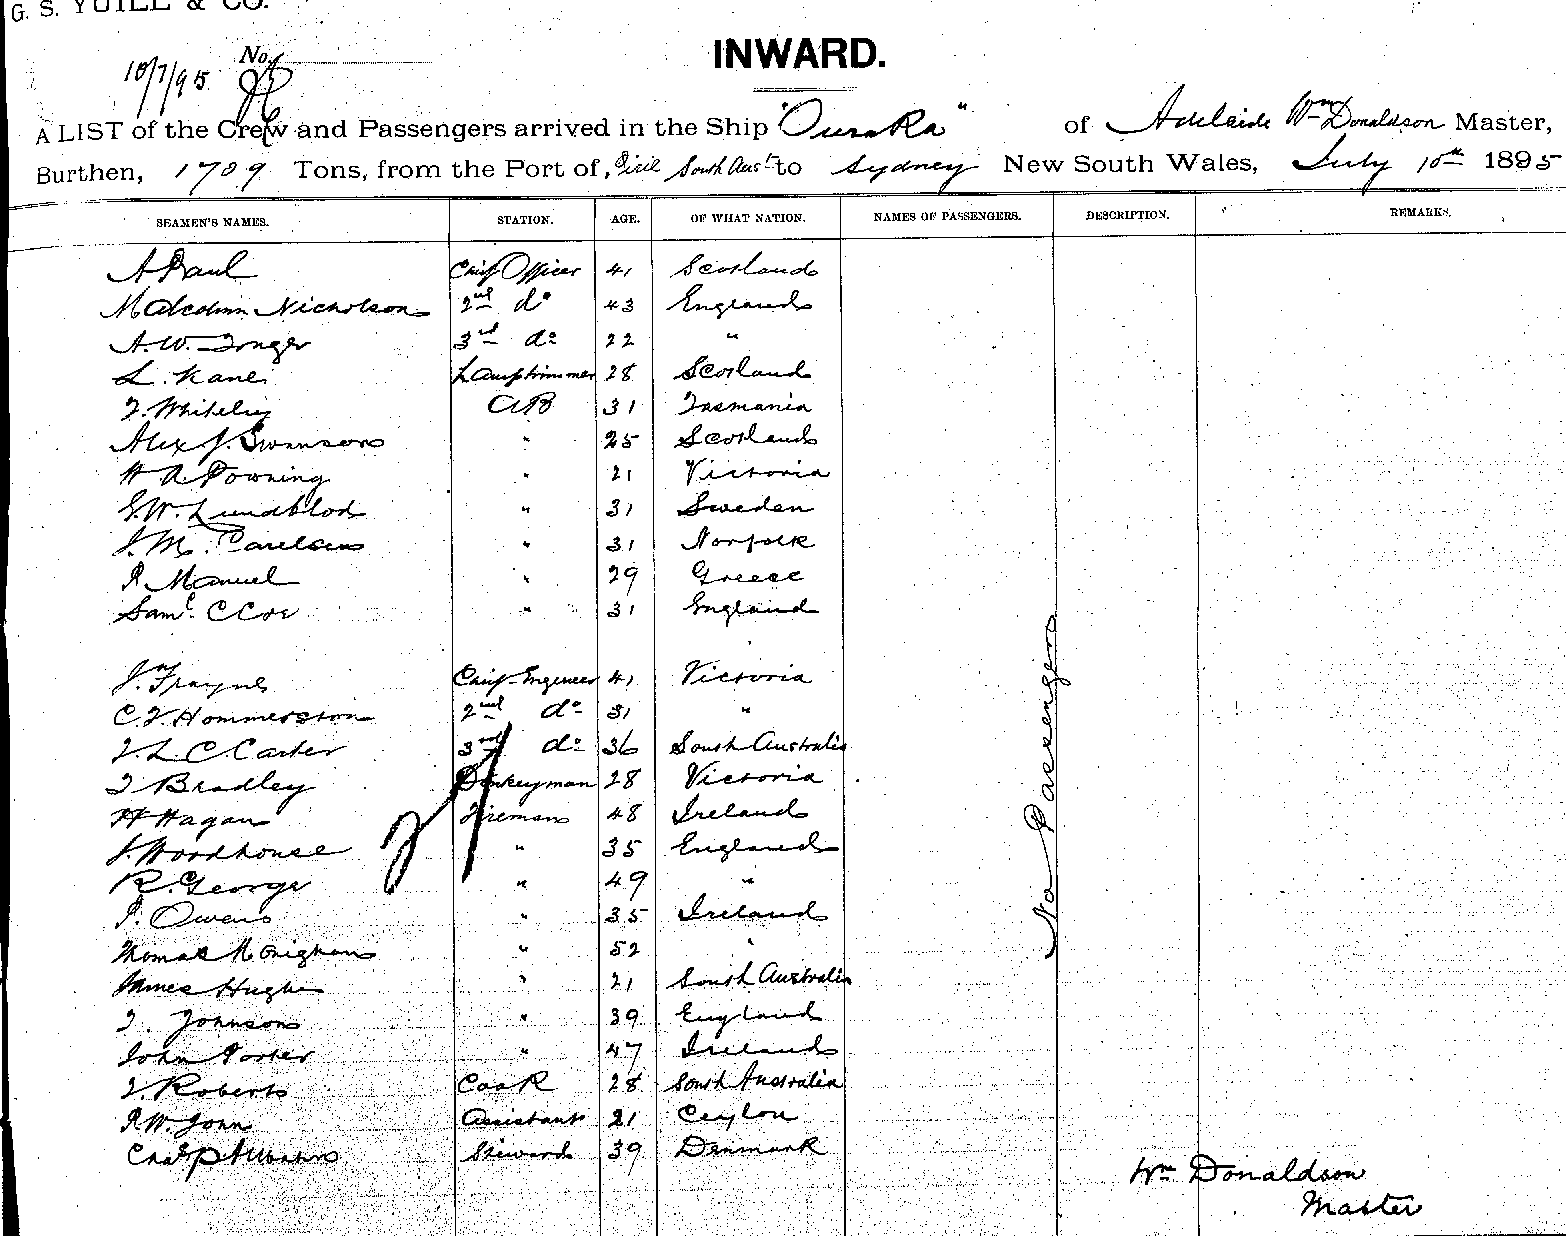 G. S. YUILL & CO.
INWARD.
No.
10/7/95
A LIST of the Crew and Passengers arrived in the Ship "Ouraka" of Adelaide Wm Donaldson Master,
Burthen, 1709 Tons, from the Port of, Pirie South Aust to Sydney New South Wales, July 10th 1895
SEAMEN'S NAMES. STATION. AGE. OF WHAT NATION. NAMES OF PASSENGERS. DESCRIPTION. REMARKS.
A Paul Chief Officer 41 Scotland
Malcolm Nicholson 2nd do 43 England
A. W. 3rd do 22 "
L. Kane Lamptrimmer 28 Scotland
T. Whiteley AB 31 Tasmania
Alex J. Swanson " 25 Scotland
H A. Downing " 21 Victoria
G. W. Lundblod " 31 Sweden
J. M. Carelsen " 31 Norfolk
P Manuel " 29 Greece
Saml. C Coe " 31 England
Jn Frayne Chief Engineer 41 Victoria
C. F. Hommerston 2nd do 31 "
F. L. C Carter 3rd do 36 South Australia
T Bradley Donkeyman 28 Victoria
H Hagan Fireman 48 Ireland
J. Woodhouse " 35 England
R. George " 49 "
P. Owens " 35 Ireland
Thomas Monighan " 52 "
James Hughes " 21 South Australia
T. Johnson " 39 England
John Porter " 47 Ireland
T. Roberts Cook 28 South Australia
P. W. John Assistant 21 Ceylon
Chas Steward 39 Denmark
No Passengers
Wm Donaldson
Master